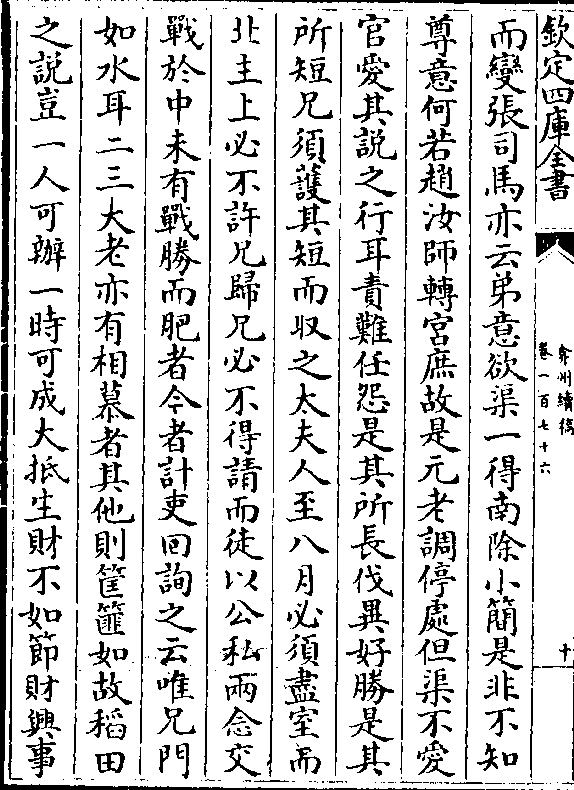 欽定四庫全書
弇州續稿
卷一百七十六
十
而變張司馬亦云弟意欲渠一得南除小簡是非不知
尊意何若趙汝師轉宮庶故是元老調停處但渠不愛
官愛其說之行耳責難任怨是其所長伐異好勝是其
所短兄須護其短而収之太夫人至八月必須盡室而
北主上必不許兄歸兄必不得請而徒以公私兩念交
戰於中未有戰勝而肥者今者計吏回詢之云唯兄門
如水耳二三大老亦有相慕者其他則筐篚如故稻田
之說豈一人可辦一時可成大抵生財不如節財興事